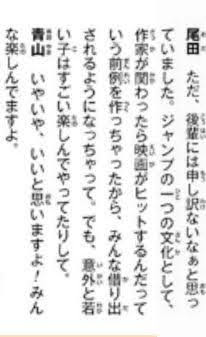 尾田　ただ、後輩には申し訳ないなぁと思っ
ていました。ジャンプの一つの文化として、
作家が関わったら映画がヒットするんだって
いう前例を作っちゃったから、みんな借り出
されるようになっちゃって。でも、意外と若
い子はすごい楽しんでやってたりして。
青山　いやいや、いいと思いますよ！みん
な楽しんでますよ。